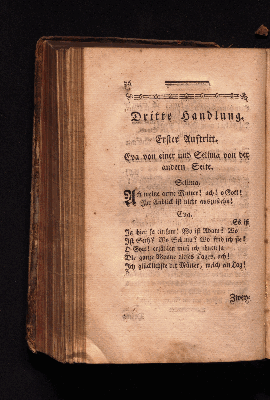 Dritte Handlung.
Erster Auftritt.
Eva von einer und Selima von der
andern Seite.
Selima.
Ach meine arme Mutter! ach! o Gott!
Ihr Anblick ist nicht auszustehn!
Eva.
Es ist
Ja hier so einsam! Wo ist Adam? Wo
Ist Seth? Wo Selima? Wo find ich sie?
O Gott! erzählen muß ich ihnen ja
Die ganze Wonne dieses Tages, ach!
Ich glücklichste der Mütter, welch ein Tag!
Zwey-